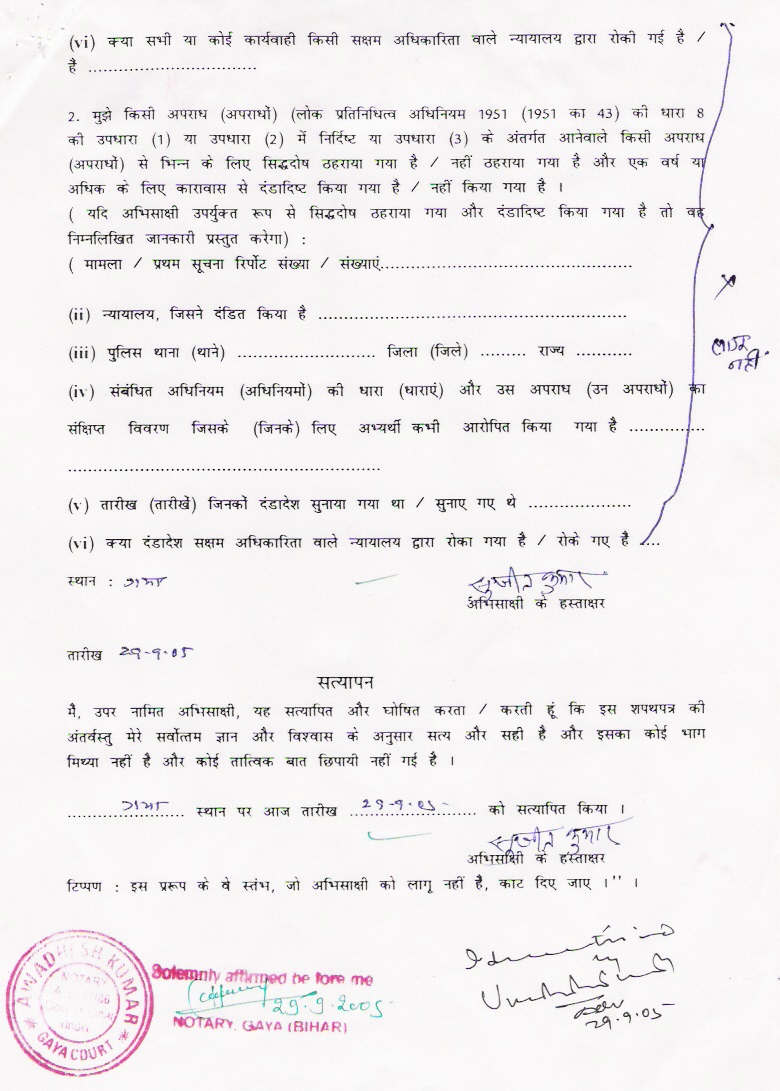 (vi) क्या सभी या कोई कार्यवाही किसी सक्षम अधिकारिता वाले न्यायालय द्वारा रोकी गई है /
है ................................
2. मुझे किसी अपराध (अपराधों) (लोक प्रतिनिधित्व अधिनियम 1951 (1951 का 43) की धारा 8
की उपधारा (1) या उपधारा (2) में निर्दिष्ट या उपधारा (3) के अंतर्गत आनेवाले किसी अपराध
(अपराधों) से भिन्न के लिए सिद्धदोष ठहराया गया है / नहीं ठहराया गया है और एक वर्ष या
अधिक के लिए कारावास से दंडादिष्ट किया गया है / नहीं किया गया है ।
( यदि अभिसाक्षी उपर्युक्त रूप से सिद्धदोष ठहराया गया और दंडादिष्ट किया गया है तो वह
निम्नलिखित जानकारी प्रस्तुत करेगा) :
( मामला / प्रथम सूचना रिर्पोट संख्या / संख्याएं................................................
(ii) न्यायालय, जिसने दंडित किया है ..........................................................
(iii) पुलिस थाना (थाने) .......................... जिला (जिले) ......... राज्य ...........
लागू
नहीं
(iv) संबंधित अधिनियम (अधिनियमों) की धारा (धाराएं) और उस अपराध (उन अपराधों) का
संक्षिप्त विवरण जिसके (जिनके) लिए अभ्यर्थी कभी आरोपित किया गया है ..............
...........................................................
(v) तारीख (तारीखें) जिनकों दंडादेश सुनाया गया था / सुनाए गए थे ....................
(vi) क्या दंडादेश सक्षम अधिकारिता वाले न्यायालय द्वारा रोका गया है / रोके गए है ....
स्थान : गया
सुजीत कुमार
अभिसाक्षी के हस्ताक्षर
तारीख 29-9-05
सत्यापन
मै, उपर नामित अभिसाक्षी, यह सत्यापित और घोषित करता / करती हूं कि इस शपथपत्र की
अंतर्वस्तु मेरे सर्वोत्तम ज्ञान और विश्वास के अनुसार सत्य और सही है और इसका कोई भाग
मिथ्या नहीं है और कोई तात्विक बात छिपायी नहीं गई है ।
गया स्थान पर आज तारीख 29-9-05- को सत्यापित किया ।
सुजीत कुमार
अभिसाक्षी के हस्ताक्षर
टिप्पण : इस प्ररूप के वे स्तंभ, जो अभिसाक्षी को लागू नहीं है, काट दिए जाए ।'' ।
AWADHESH KUMAR
NOTARY
GAYA COURT
Solemnly affirmed be fore me
29.9.2005
NOTARY, GAYA (BIHAR)
29.9.05